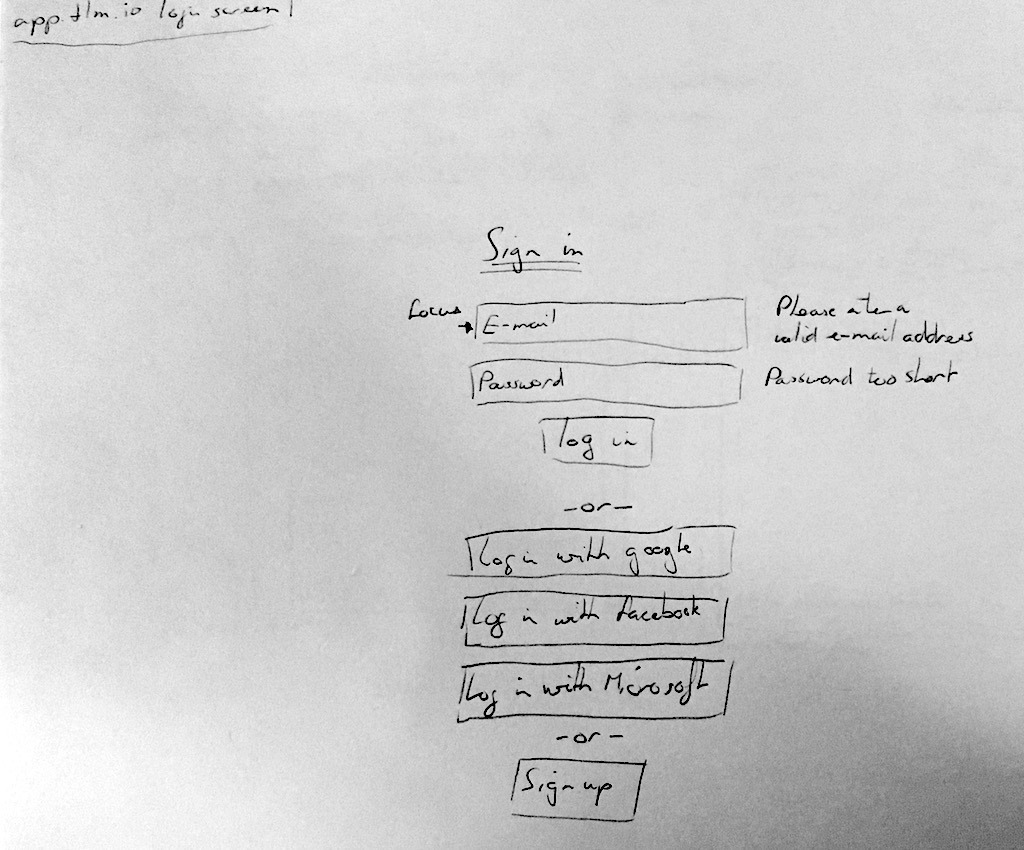 app.tlm.io login screen
Sign in
focus
E-mail
Please enter a
valid e-mail address
Password
Password too short
log in
-or-
Log in with google
Log in with facebook
Log in with Microsoft
-or-
Sign up